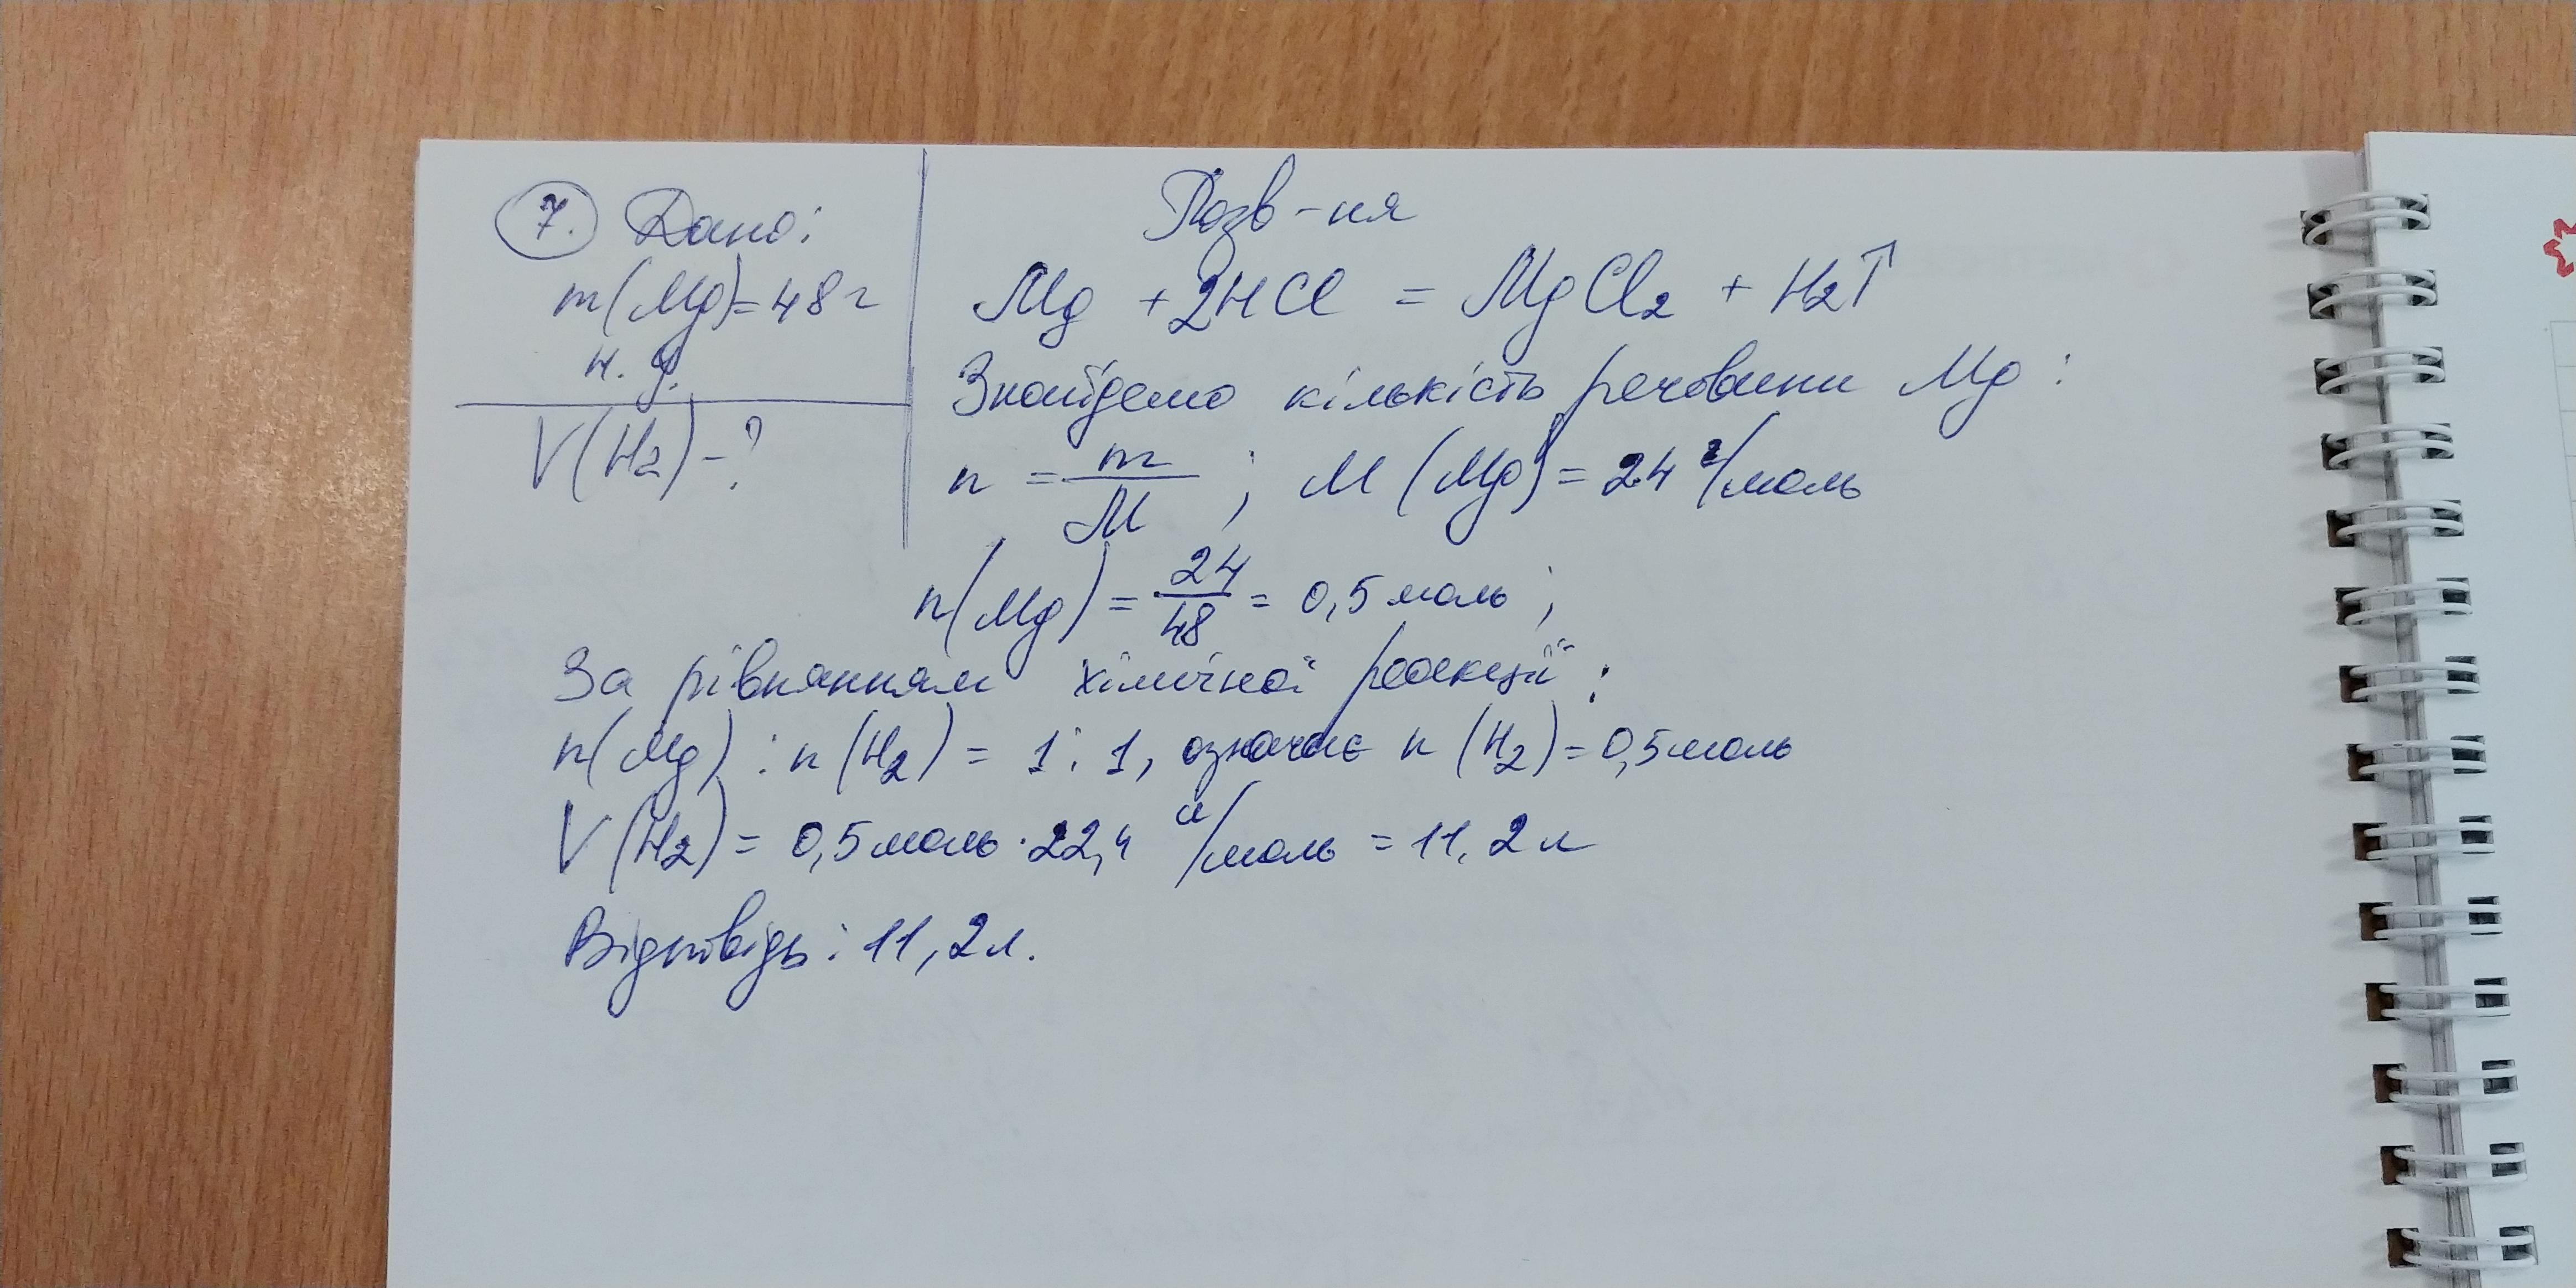 7. Дано:
m(Mg)=48г
н. у.
V(H2)-?
Розв-ня
Mg + 2HCl = MgCl2 + H2↑
Знайдемо кількість речовини Mg:
n = m/M ; M(Mg) = 24 г/моль
n(Mg) = 24/48 = 0,5 моль;
За рівнянням хімічної реакції:
n(Mg) : n(H2) = 1 : 1, означає n(H2) = 0,5 моль
V(H2) = 0,5 моль · 22,4 л/моль = 11,2 л
Відповідь: 11,2л.